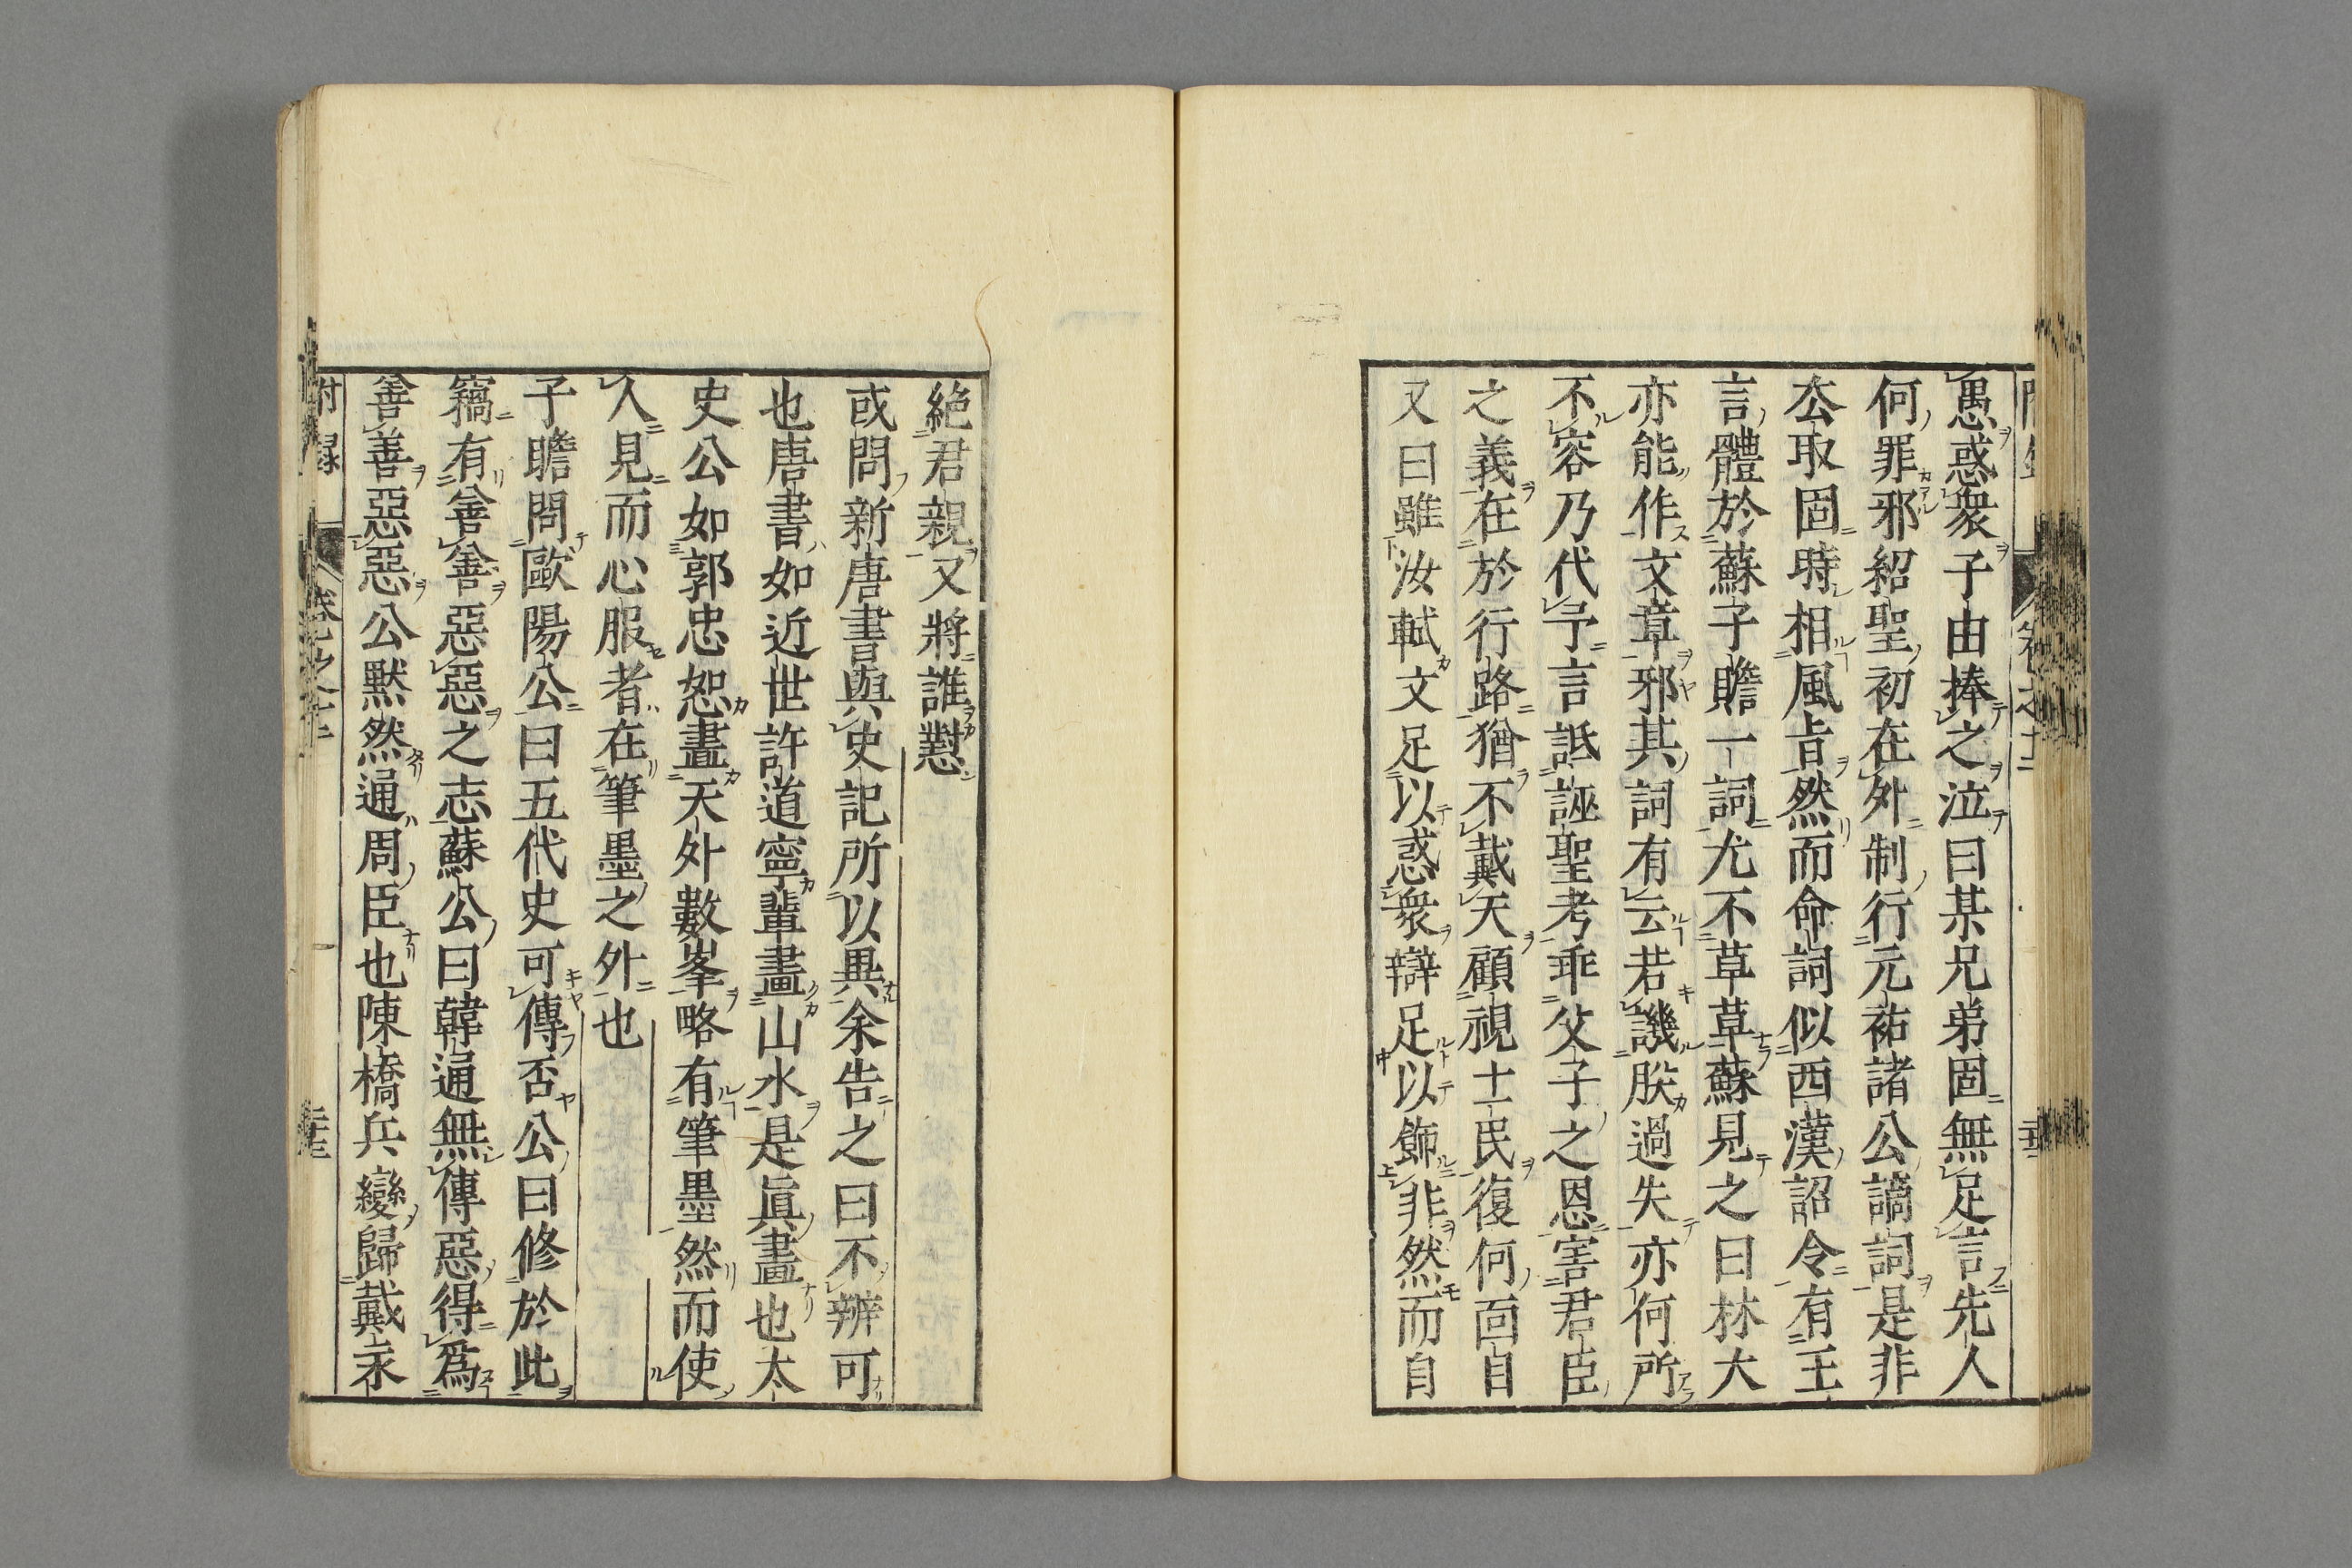 愚惑衆子由捧之泣曰某兄弟固無足言先人
何罪邪紹聖初在外制行元祐諸公謫詞是非
去取固時相風㫖然而命詞似西漢詔令有王
言體於蘇子瞻一詞尤不草草蘇見之曰林大
亦能作文章邪其詞有云若譏朕過失亦何所
不容乃代予言詆誣聖考乖父子之恩害君臣
之義在於行路猶不戴天顧視士民復何面目
又曰雖汝軾文足以惑衆辯足以飾非然而自
絶君親又將誰懟
或問新唐書與史記所以異余告之曰不辨可
也唐書如近世許道寧輩畫山水是眞畫也太
史公如郭忠恕畫天外數峯略有筆墨然而使
人見而心服者在筆墨之外也
子瞻問歐陽公曰五代史可傳否公曰修於此
竊有善善惡惡之志蘇公曰韓通無傳惡得爲
善善惡惡公默然通周臣也陳橋兵變歸戴永
附録
卷之十二